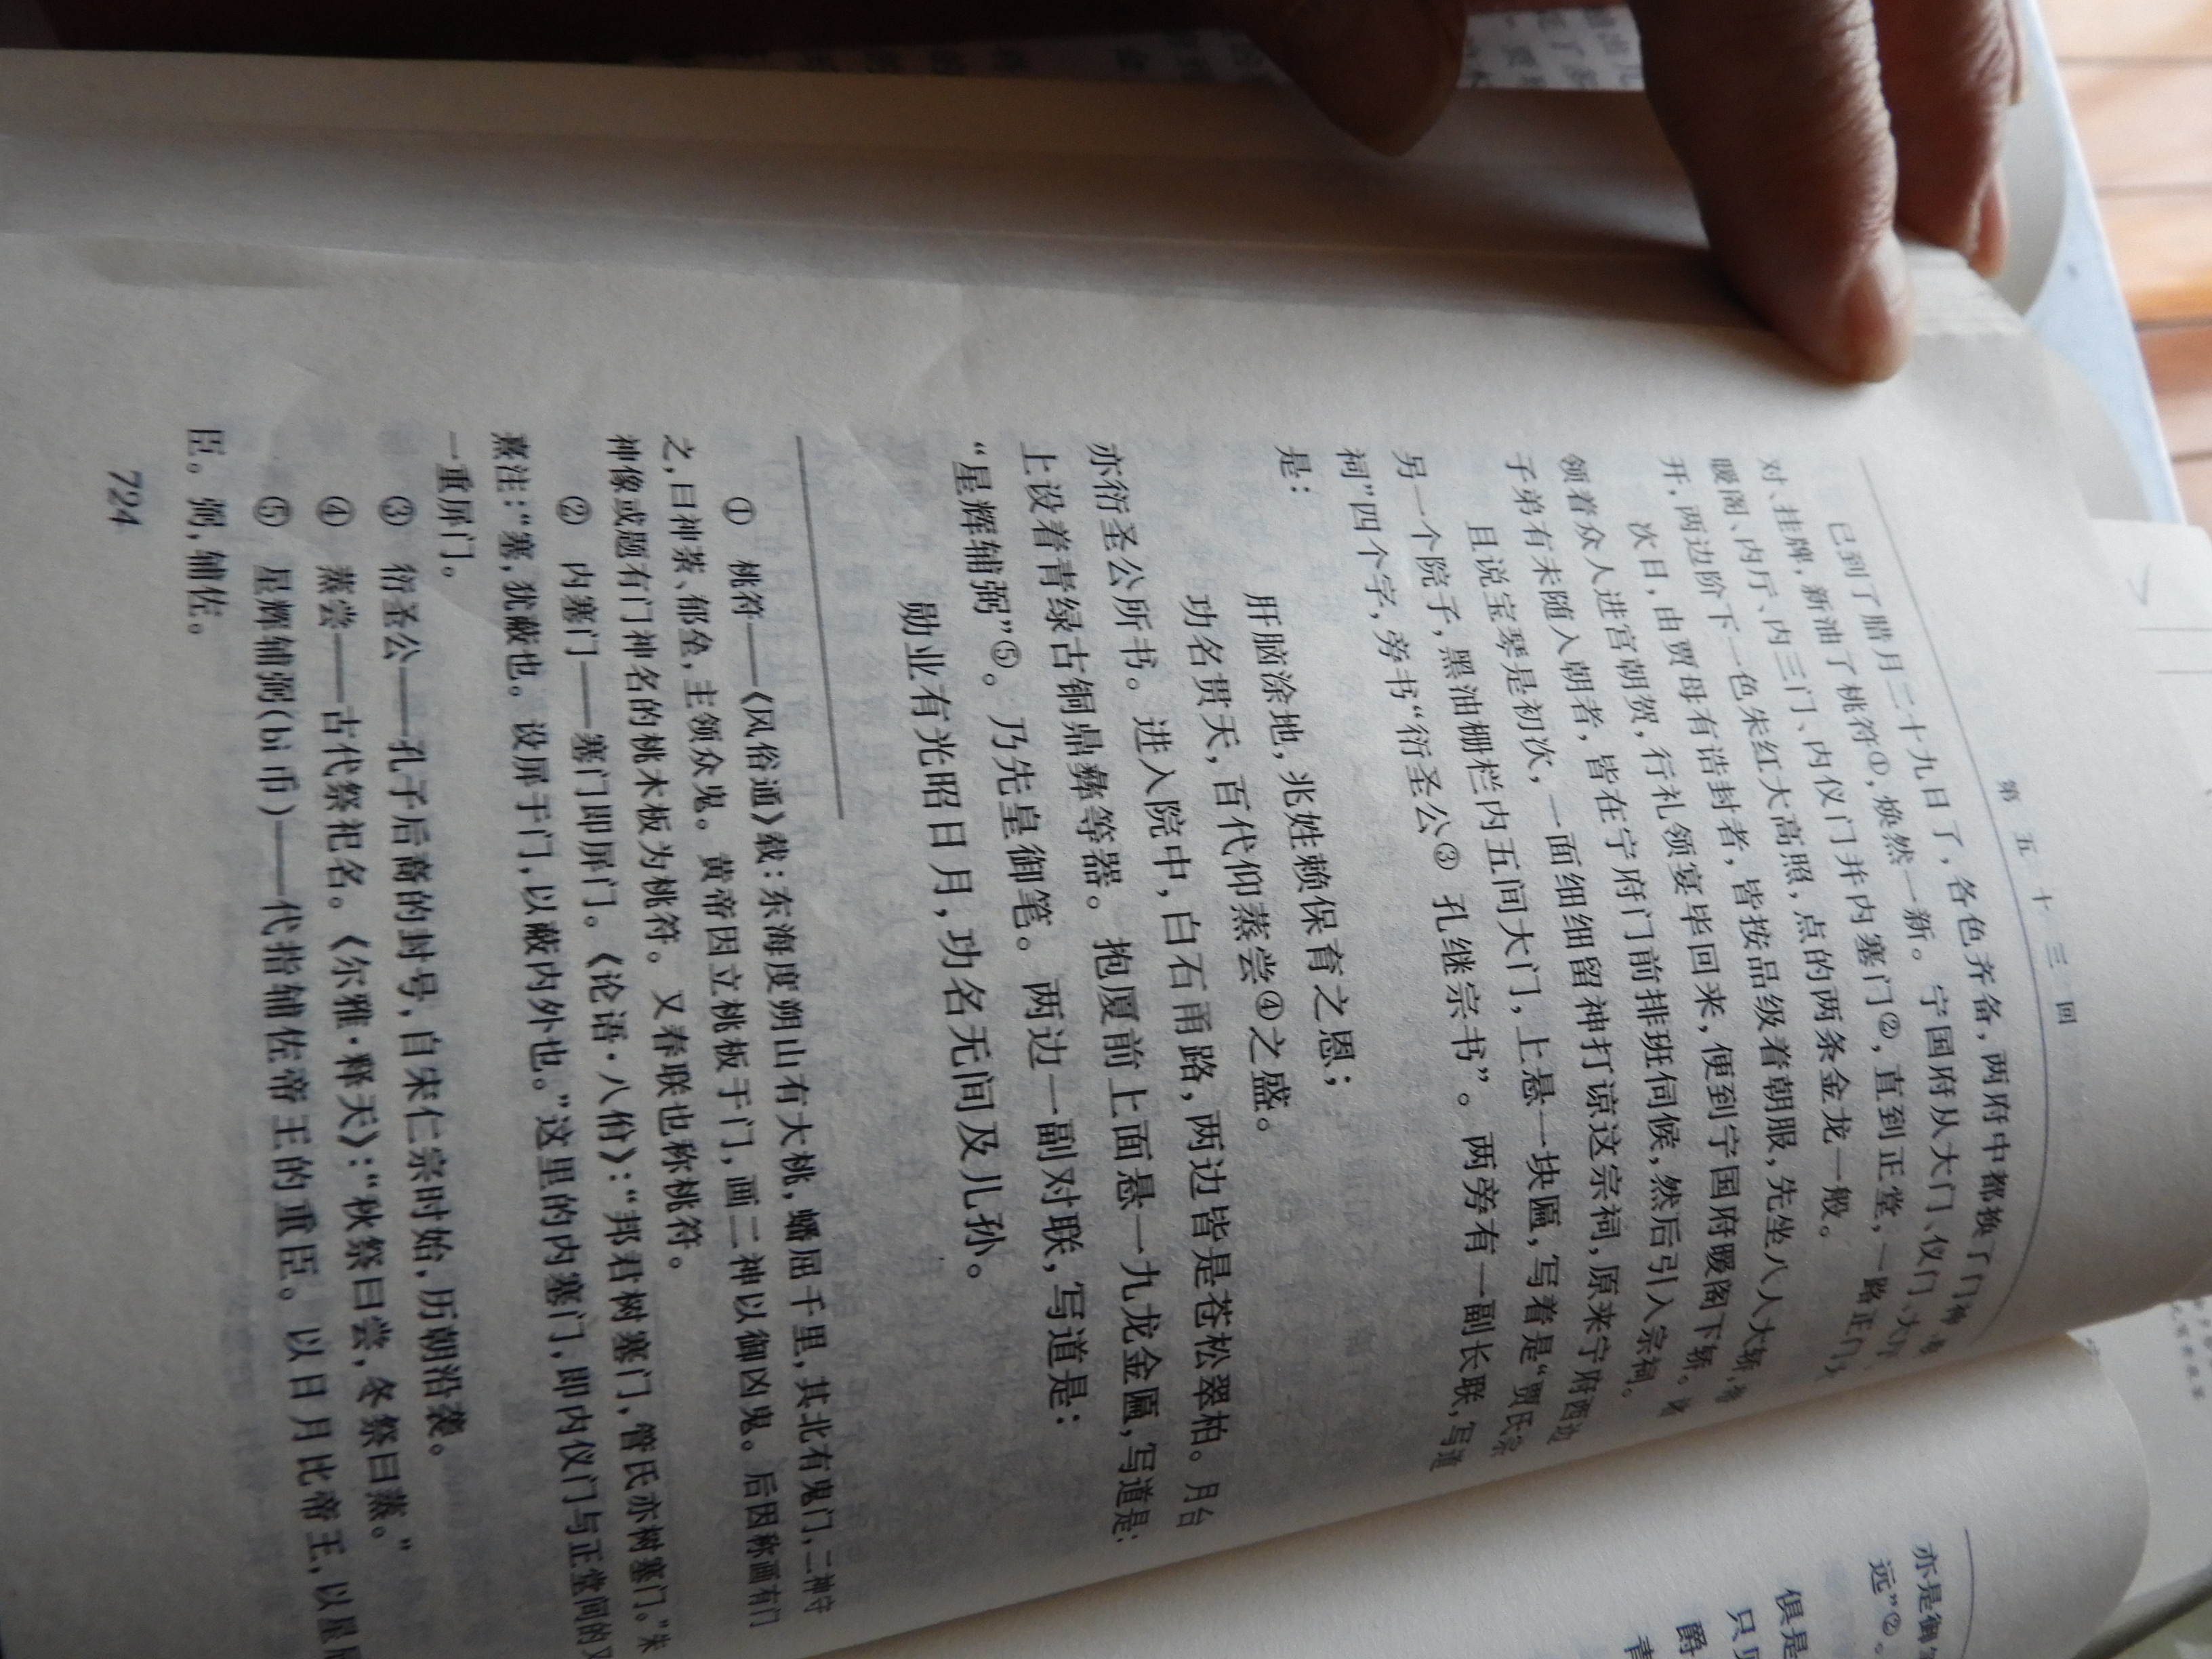 第五十三回
已到了腊月二十九日了,各色齐备,两府中都换了门神、
对、挂牌,新油了桃符①,焕然一新。宁国府从大门、仪门、大厅、
暖阁、内厅、内三门、内仪门并内塞门②,直到正堂,一路正门
开,两边阶下一色朱红大高照,点的两条金龙一般。
次日,由贾母有诰封者,皆按品级着朝服,先坐八人大轿,
领着众人进宫朝贺,行礼领宴毕回来,便到宁国府暖阁下轿。诸
子弟有未随入朝者,皆在宁府门前排班伺候,然后引入宗祠。
且说宝琴是初次,一面细细留神打谅这宗祠,原来宁府西边
另一个院子,黑油栅栏内五间大门,上悬一块匾,写着是“贾氏宗
祠”四个字,旁书“衍圣公③孔继宗书”。两旁有一副长联,写道
是:
肝脑涂地,兆姓赖保育之恩;
功名贯天,百代仰蒸尝④之盛。
亦衍圣公所书。进入院中,白石甬路,两边皆是苍松翠柏。月台
上设着青绿古铜鼎彝等器。抱厦前上面悬一九龙金匾,写道是:
“星辉辅弼”⑤。乃先皇御笔。两边一副对联,写道是:
勋业有光昭日月,功名无间及儿孙。
① 桃符——《风俗通》载:东海度朔山有大桃,蟠屈千里,其北有鬼门,二神守
之,曰神荼、郁垒,主领众鬼。黄帝因立桃板于门,画二神以御凶鬼。后因称画有门
神像或题有门神名的桃木板为桃符。又春联也称桃符。
② 内塞门——塞门即屏门。《论语·八佾》:“邦君树塞门,管氏亦树塞门。”朱
熹注:“塞,犹蔽也。设屏于门,以蔽内外也。”这里的内塞门,即内仪门与正堂间的又
一重屏门。
③ 衍圣公——孔子后裔的封号,自宋仁宗时始,历朝沿袭。
④ 蒸尝——古代祭祀名。《尔雅·释天》:“秋祭曰尝,冬祭曰蒸。”
⑤ 星辉辅弼(bì 币)——代指辅佐帝王的重臣。以日月比帝王,以星
臣。弼,辅佐。
724
亦是御
远”②。
俱是
只
爵